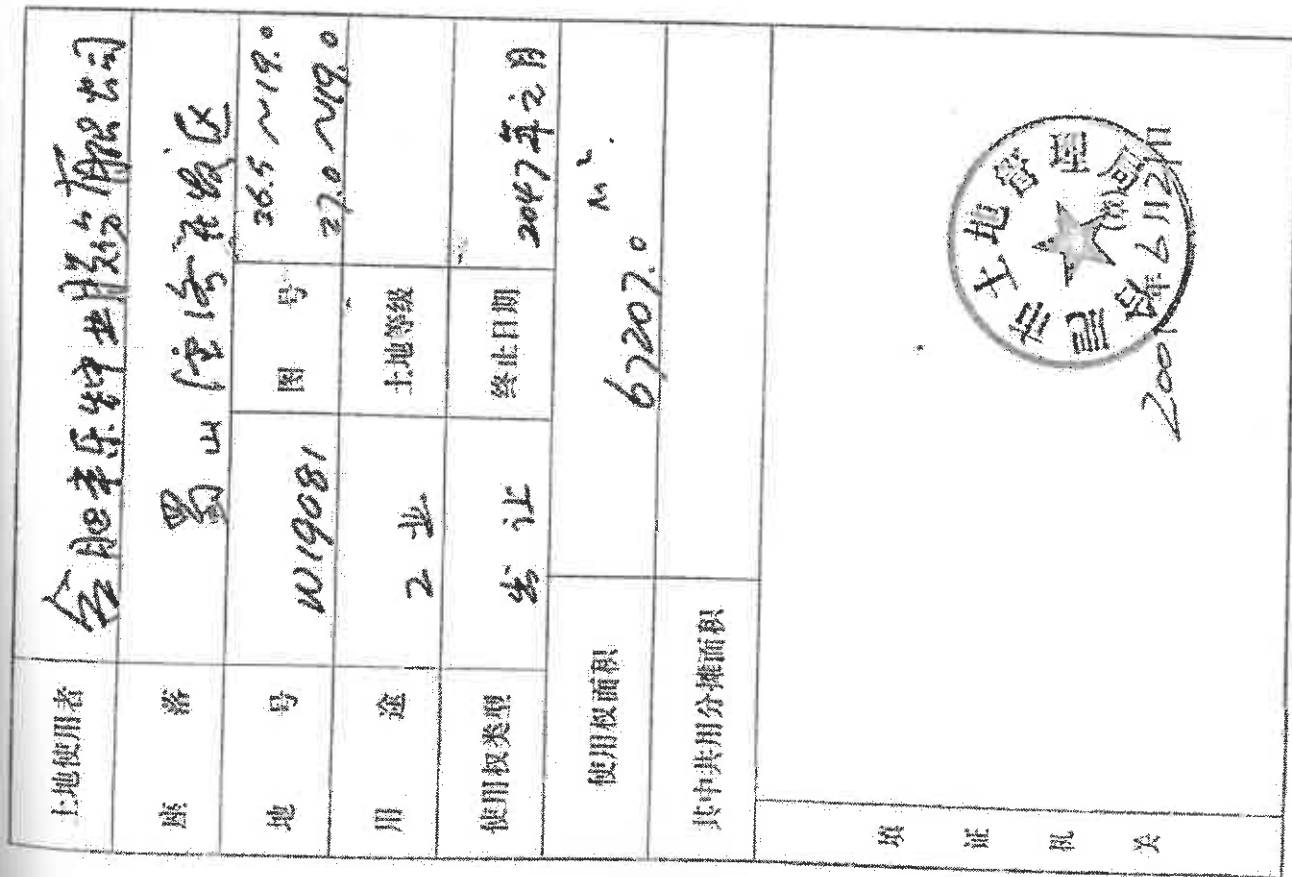 土地使用者 合肥丰乐种业股份有限公司
座落 蜀山 开发区
地号 W19081 图号 26.5~19.0
27.0~19.0
用途 工业 土地等级
使用权类型 出让 终止日期 2047年 月
使用权面积 67207.0 M².
其中共用分摊面积
填证机关
合肥市土地管理局
年6月21日